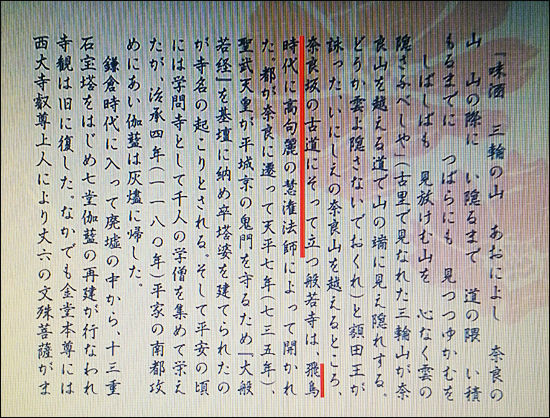 「味酒 三輪の山 あおによし 奈良の
山 山の際に い隠るまで 道の隈 い積
もるまでに つばらにも 見つつゆかむを
しばしばも 見放けむ山を 心なく雲の
隠さふべしや」古里で見なれた三輪山が奈
良山を越える道で山の端に見え隠れする。
どうか雲よ隠さないでおくれ」と額田王が
詠った、いにしえの奈良山を越えるところ、
奈良坂の古道にそって立つ般若寺は、飛鳥
時代に高句麗の慧灌法師によって開かれ
た。都が奈良に遷って天平七年(七三五年)、
聖武天皇が平城京の鬼門を守るため「大般
若経」を基壇に納め卒塔婆を建てられたの
が寺名の起こりとされる。そして平安の頃
には学問寺として千人の学僧を集めて栄え
たが、治承四年(一一八〇年)平家の南都攻
めにあい伽藍は灰燼に帰した。
鎌倉時代に入って廃墟の中から、十三重
石宝塔をはじめ七堂伽藍の再建が行なわれ
寺観は旧に復した。なかでも金堂本尊には
西大寺叡尊上人により丈六の文殊菩薩がま